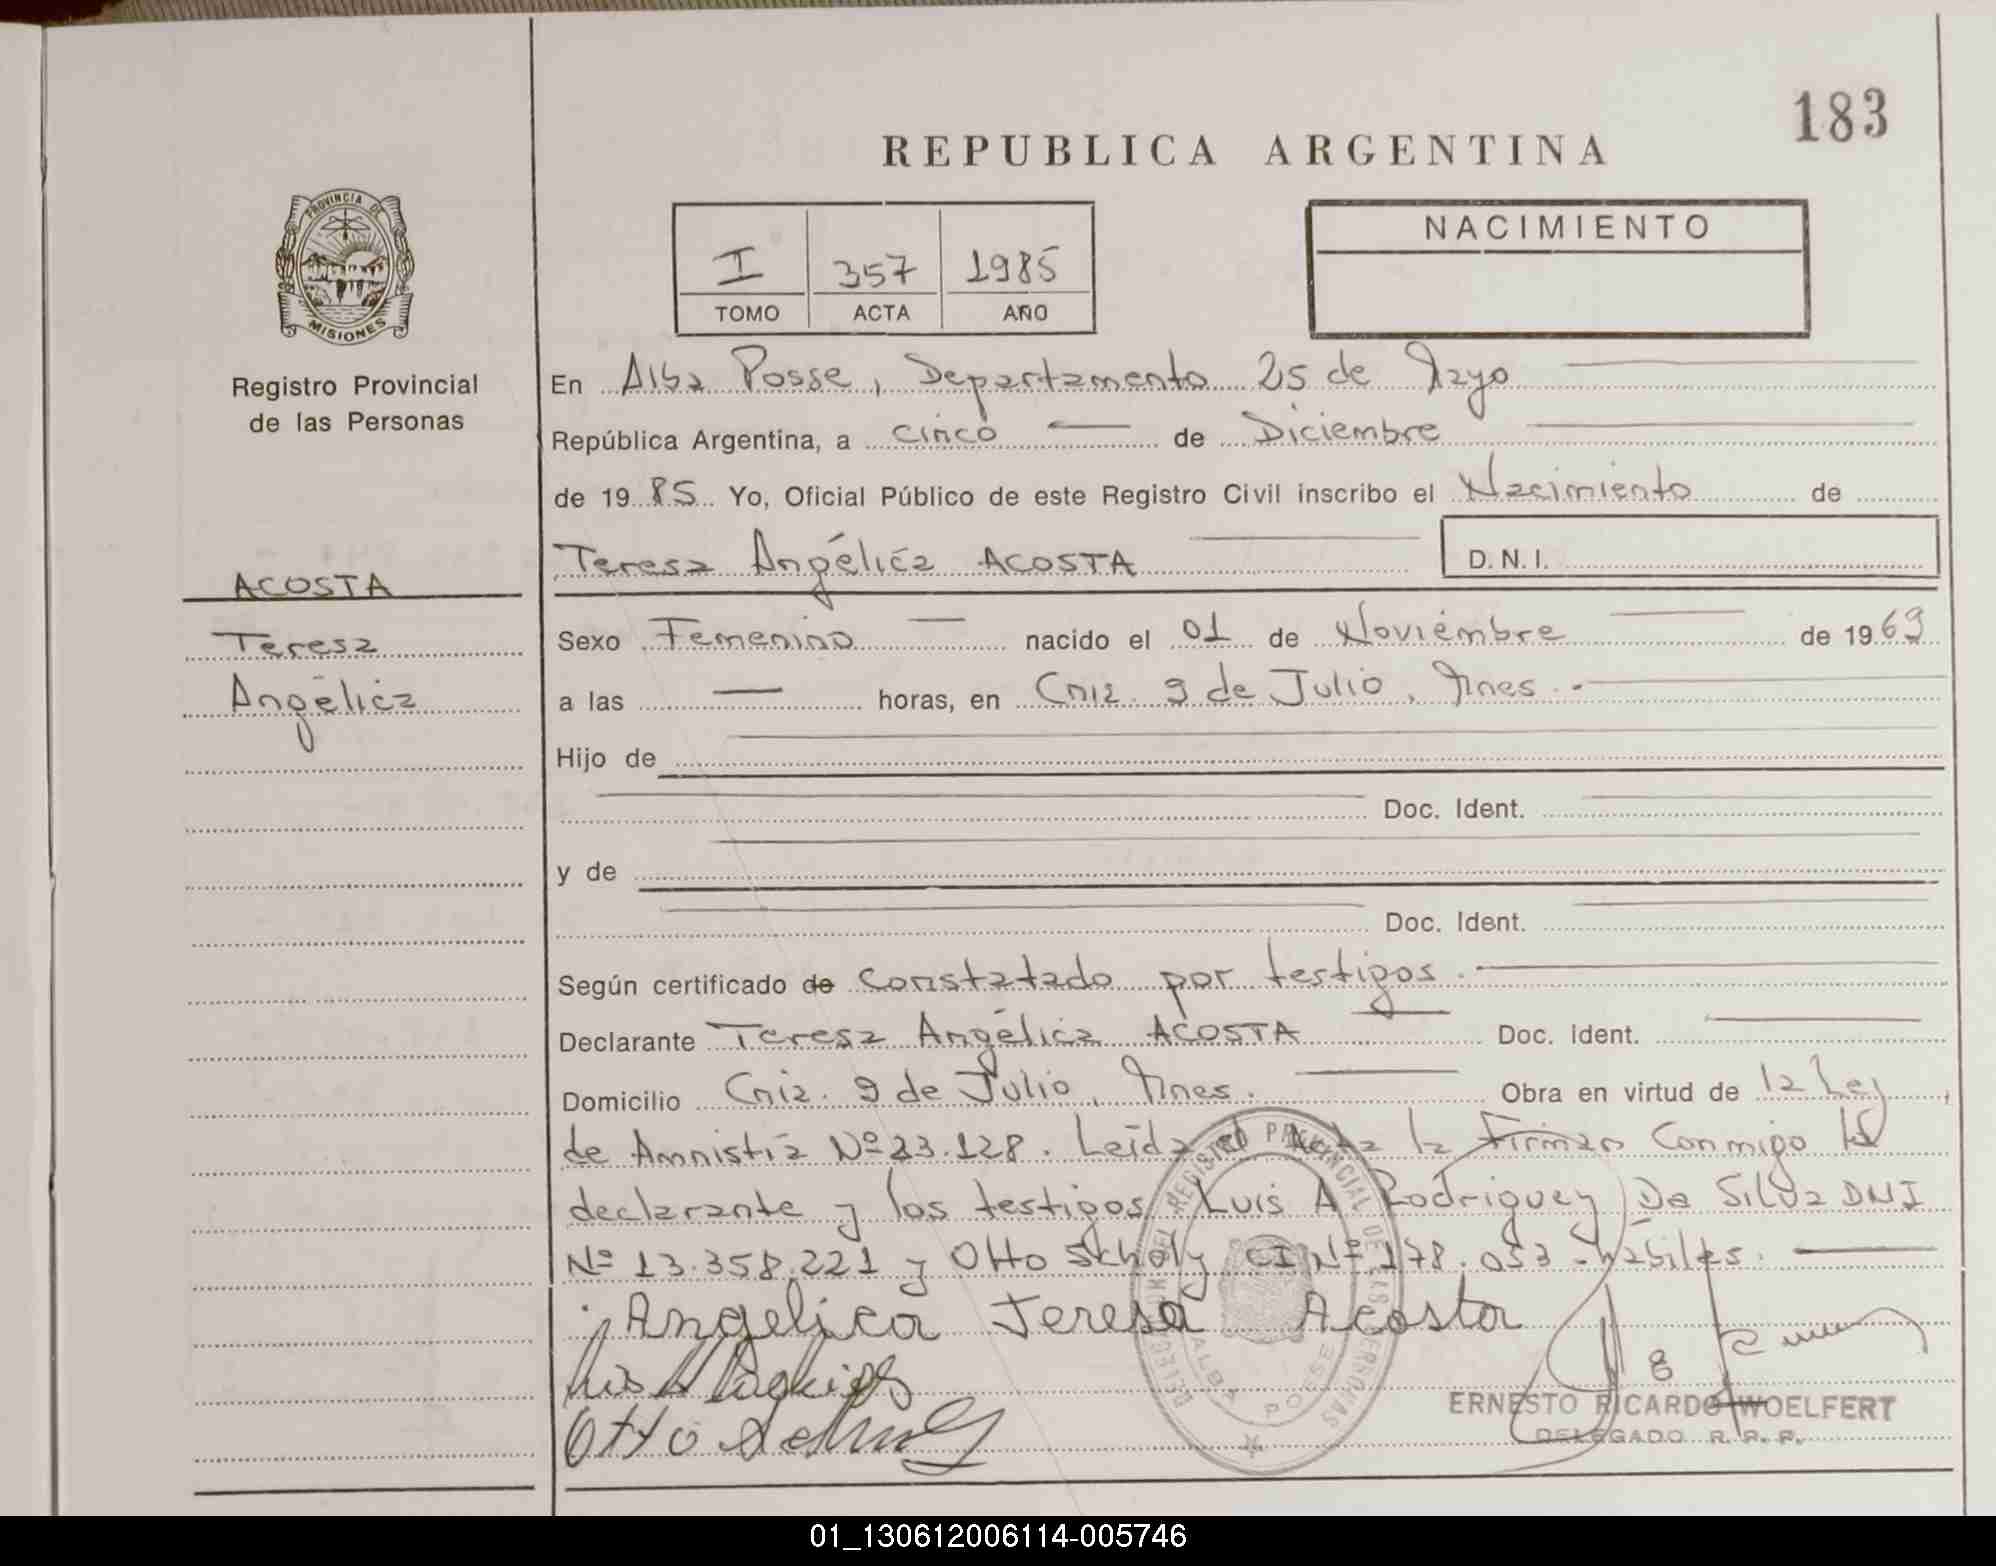 183
REPUBLICA ARGENTINA
NACIMIENTO
I 357 1985
TOMO ACTA AÑO
PROVINCIA DE
MISIONES
Registro Provincial
de las Personas
ACOSTA
Teresa
Angélica
En Alba Posse, Departamento 25 de Mayo
República Argentina, a cinco de Diciembre
de 1985 Yo, Oficial Público de este Registro Civil inscribo el Nacimiento de
Teresa Angélica ACOSTA D.N.I.
Sexo Femenino nacido el 01 de Noviembre de 1969
a las horas, en Cnia. 9 de Julio, Mnes.
Hijo de
Doc. Ident.
y de
Doc. Ident.
Según certificado de Constatado por testigos.
Declarante Teresa Angélica ACOSTA Doc. Ident.
Domicilio Cnia. 9 de Julio, Mnes. Obra en virtud de la Ley
de Amnistía Nº 23.128. Leída el Acta la Firman Conmigo la
declarante y los testigos Luis A Rodriguez Da Silva DNI
Nº 13.358.221 y Otto Scholz CI Nº 178.053 - hábiles.
Angelica Teresa Acosta
Otto
REGISTRO PROVINCIAL DE LAS PERSONAS
ALBA POSSE
ERNESTO RICARDO WOELFERT
DELEGADO R. P. P.
01_130612006114-005746